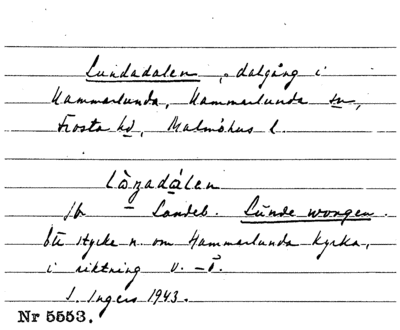 Lundadalen, dalgång i
Hammarlunda, Hammarlunda sn,
Frosta hd, Malmöhus l.
jfr Landeb. Lunde wongen.
Ett stycke n. om Hammarlunda kyrka,
i riktning v. – ö.
I. Ingers 1943.
Nr 5553.